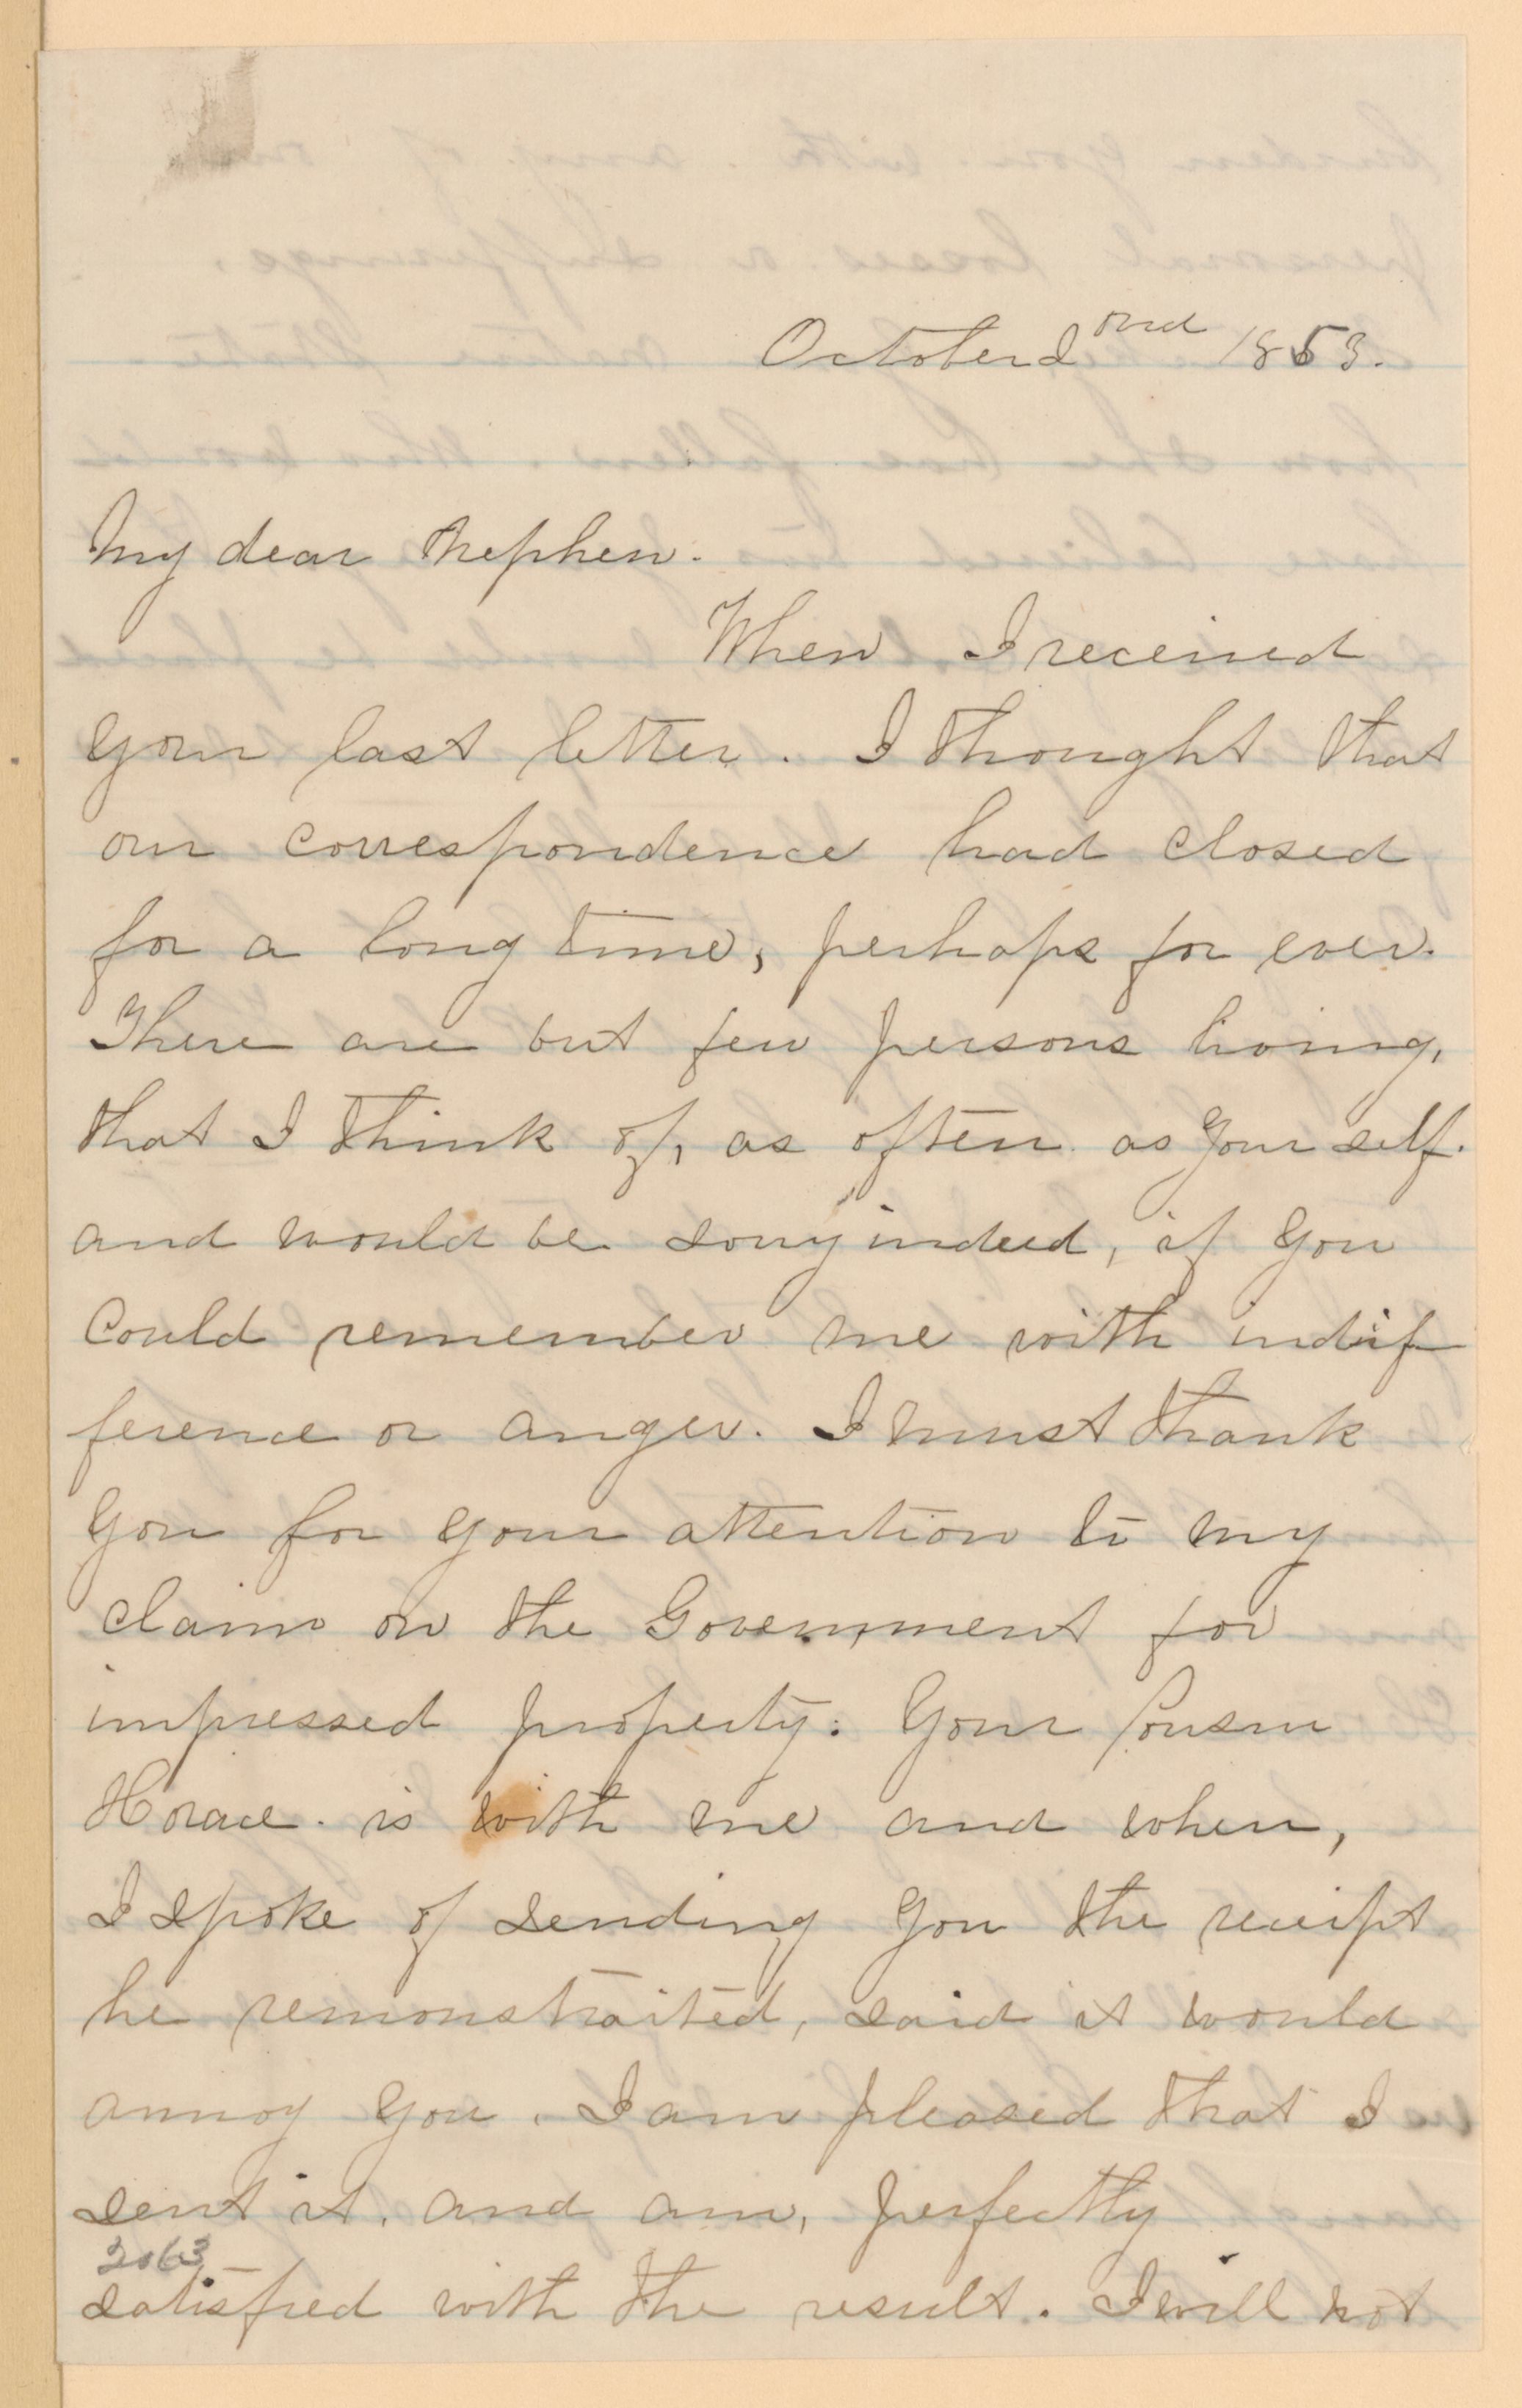 October 2ond 1853.
My dear Nephew.
When I received
your last letter. I thought that
our correspondence had closed
for a long time, perhaps for ever.
There are but few persons living,
that I think of, as often as your self.
and would be sorry indeed, if you
could remember me with indif
ference or anger. I must thank
you for your attention to my
claim on the Government for
impressed property: Your Cousin
Horace. is with me and when,
I spoke of sending you the receipt
he remonstraited, said it would
annoy you. I am pleased that I
sent it. and am, perfectly
2063
satisfied with the result. I will not